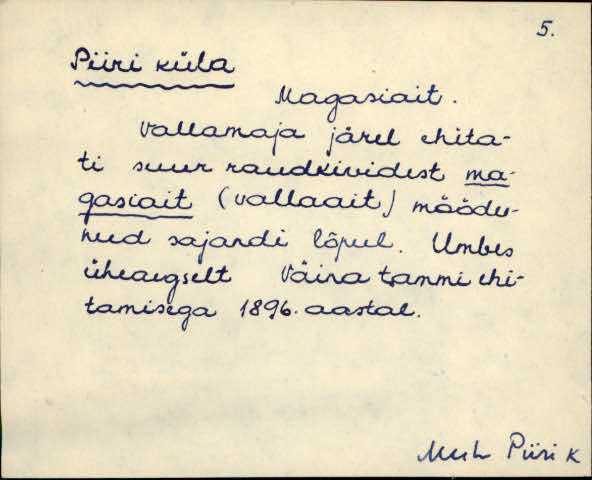 5.
Piiri küla
Magasiait.
Vallamaja järel ehita-
ti suur raudkividest ma-
gasiait (vallaait) möödu-
nud sajandi lõpul. Umbes
üheaegselt Väina tammi ehi-
tamisega 1896. aastal.
Muh Piiri k